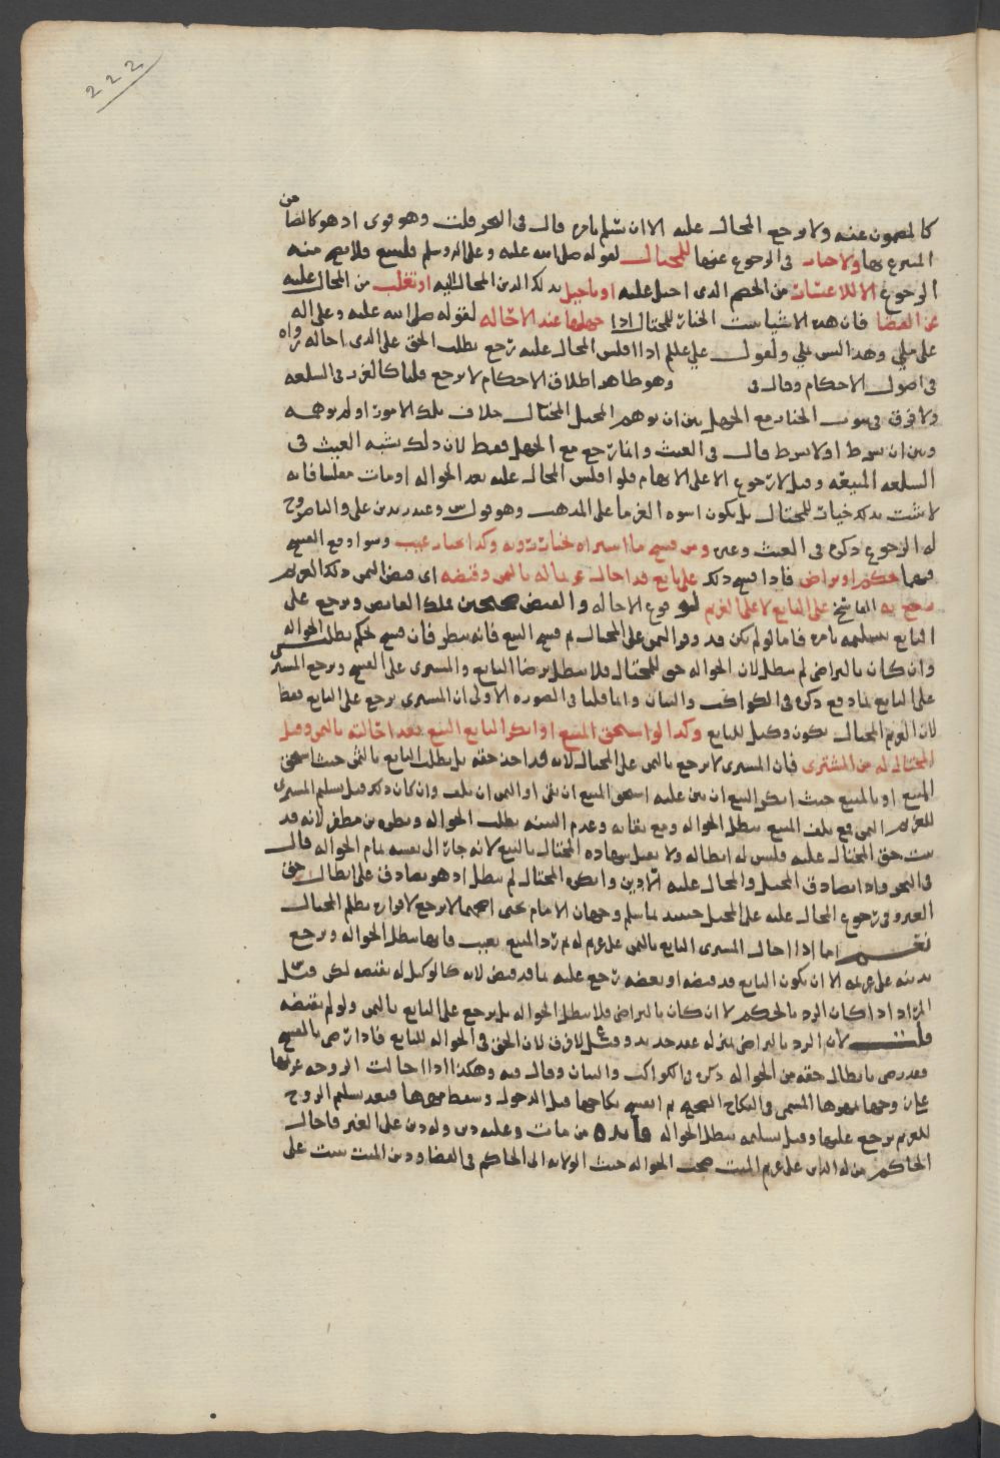 222
كالمضمون عنه ولا يرجع المحال عليه الا ان سلم بامره قال في البحر قلت وهو قوي اذ هو كالضامن
المتبرع بها ولا خيار في الرجوع عنها للمحتال لقوله صلى الله عليه وعلى اله وسلم فليتبع فلا يصح منه
الرجوع الا للاعسار من الخصم الذي احيل عليه او تاجيل بذلك الدين المحال اليه او تغلب من المحال عليه
عن القضا فان هذه الاشيا يثبت الخيار للمحتال اذا جهلها عند الاحاله لقوله صلى الله عليه وعلى اله
على ملي وهذا ليس بملي ولقول علي عللم اذا افلس المحال عليه رجع بطلب الحق على الذي احاله رواه
في اصول الاحكام وقال في وهو ظاهر اطلاق الاحكام لا يرجع قلنا كالغرر في السلعه
ولا فرق في ثبوت الخيار مع الجهل بين ان يوهم المحيل المحتال خلاف تلك الامور او لم يوهمه
وبين ان يشرط اولا يشرط قال في الغيث وانما رجع مع الجهل فقط لان ذلك يشبه العيب في
السلعه المبيعه وقيل لا رجوع الا على الايهام فلو افلس المحال عليه بعد الحواله او مات مفلسا فانه
لا يثبت بذلك خيار للمحتال بل يكون اسوه الغرما على المذهب وهو قول س وعند زيد بن علي والناصر وح
له الرجوع ذكره في الغيث وغيره ومن فسخ ما اشتراه بخيار رويه وكذا خيار عيب وسوا وقع الفسخ
فيهما بحكم او تراض فاذا فسخ ذلك على بايع قد احال غريما له بالثمن وقبضه اي قبض الثمن ذلك الغريم
رجع به الفاسخ على البايع لا على الغريم لوقوع الاحاله والقبض صحيحين فملك القابض ويرجع على
البايع بتسليمه بامره فاما لو لم يكن قد دفع الثمن على المحتال ثم فسخ البيع فانه ينظر فان فسخ بحكم بطلت الحواله
وان كان بالتراضي لم تبطل لان الحواله حق للمحتال فلا تبطل برضا البايع والمشتري على الفسخ ويرجع المشتري
على البايع بما دفع ذكره في الكواكب والبيان وانما قلنا في الصوره الاولى ان المشتري يرجع على البايع فقط
لان الغريم المحتال يكون وكيل للبايع وكذا لو استحق المبيع او انكر البايع البيع بعد احالته بالثمن وقبل
المحتال له من المشتري فان المشتري لا يرجع بالثمن على المحتال لانه قد اخذ حقه بل يطلب البايع بالثمن حيث استحق
المبيع او بالمبيع حيث انكر البيع ان بين عليه استحق المبيع ان بقي او الثمن ان تلف وان كان ذلك قبل تسليم المشتري
للغريم الثمن فمع تلف المبيع تبطل الحواله ومع بقايه وعدم البينه بطلت الحواله ونظره بن مظفر لانه قد
ثبت حق المحتال عليه فليس له ابطاله ولا تقبل شهاده المحتال بالبيع لانه جار الى نفسه تمام الحواله قال
في البحر واذا تصادق المحيل والمحال عليه الا دين وانكره المحتال لم تبطل اذ هو تصادق على ابطال حق
الغير وفي رجوع المحال عليه على المحيل حينئذ بما سلم وجهان الامام يحيى اصحهما لا يرجع لاقراره بظلم المحتال
نعم اما اذا احال المشتري البايع بالثمن على غريم له ثم رد المبيع بعيب فانها تبطل الحواله ويرجع
بدينه على غريمه الا ان يكون البايع قد قبضه او بعضه رجع عليه بما قد قبض لانه كالوكيل له بقبضه لكن قيل
المراد اذا كان الرد بالحكم لا ان كان بالتراضي فلا تبطل الحواله بل يرجع على البايع بالثمن ولو لم يقبضه
قلت لان الرد بالتراضي بمنزله عقد جديد وقيل لا فرق لان الحق في الحواله للبايع فاذا رضي بالفسخ
فقد رضي بابطال حقه من الحواله ذكره في الكواكب والبيان وقال فيه وهكذا اذا احالت الزوجه غريمها
على زوجها بمهرها المسمى في النكاح الصحيح ثم انفسخ نكاحها قبل الدخول وسقط مهرها فبعد تسليم الزوج
للغريم يرجع عليها وقبل تسليمه تبطل الحواله فايده من مات وعليه دين وله دين على الغير فاحال
الحاكم من له الدين على غريم الميت صحت الحواله حيث الولايه الى الحاكم في القضا ودين الميت ثبت على